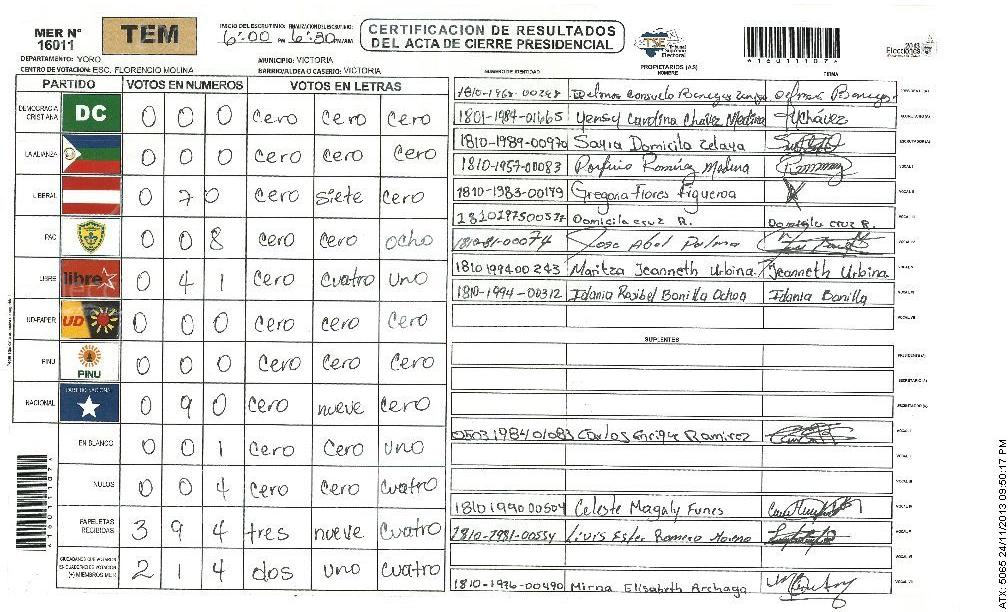 MER N° 16011
TEM
INICIO DEL ESCRUTINIO: FINALIZACION DEL ESCRUTINIO:
6:00 PM 6:30 PM/AM
CERTIFICACION DE RESULTADOS DEL ACTA DE CIERRE PRESIDENCIAL
TSE Tribunal Supremo Electoral
6160111074
2013 Elecciones
DEPARTAMENTO: YORO
MUNICIPIO: VICTORIA
CENTRO DE VOTACION: ESC. FLORENCIO MOLINA
BARRIO/ALDEA O CASERIO: VICTORIA
NUMERO DE IDENTIDAD PROPIETARIOS (AS) NOMBRE FIRMA
PARTIDO VOTOS EN NUMEROS VOTOS EN LETRAS
DEMOCRACIA CRISTIANA DC 0 0 0 Cero Cero Cero
LA ALIANZA 0 0 0 Cero Cero Cero
LIBERAL 0 7 0 Cero Siete Cero
PAC 0 0 8 Cero Cero ocho
LIBRE libre 0 4 1 Cero Cuatro Uno
UD-FAPER UD 0 0 0 Cero Cero Cero
PINU PINU 0 0 0 Cero Cero Cero
NACIONAL PARTIDO NACIONAL 0 9 0 Cero nueve Cero
EN BLANCO 0 0 1 Cero Cero uno
NULOS 0 0 4 Cero Cero Cuatro
PAPELETAS RECIBIDAS 3 9 4 tres nueve Cuatro
CIUDADANOS QUE VOTARON EN CUADERNO DE VOTACION (+) MIEMBROS MER 2 1 4 dos uno Cuatro
1801-1984-01665 Yensy Carolina Chávez Medina YChávez
1810-1989-00970 Sayra Domicila Zelaya
1810-1957-00083 Porfirio Ramirez Medina
1810-1983-00179 Gregoria Flores Figueroa X
Domicila cruz R. Domicila cruz R.
1810-81-00074 Jose Abel Palma
1810199400243 Maritza Jeanneth Urbina. Jeanneth Urbina
1810-1994-00312 Idania Rosibel Bonilla Ochoa Idania Bonilla
SUPLENTES
0503198401083 Carlos Enrique Ramirez
1810199000504 Celeste Magaly Funes
1810-1981-00554 Ester Romero
1810-1976-00490 Mirna Elisabeth Archaga
6160111074
ATX: 5065 24/11/2013 09:50:17 PM